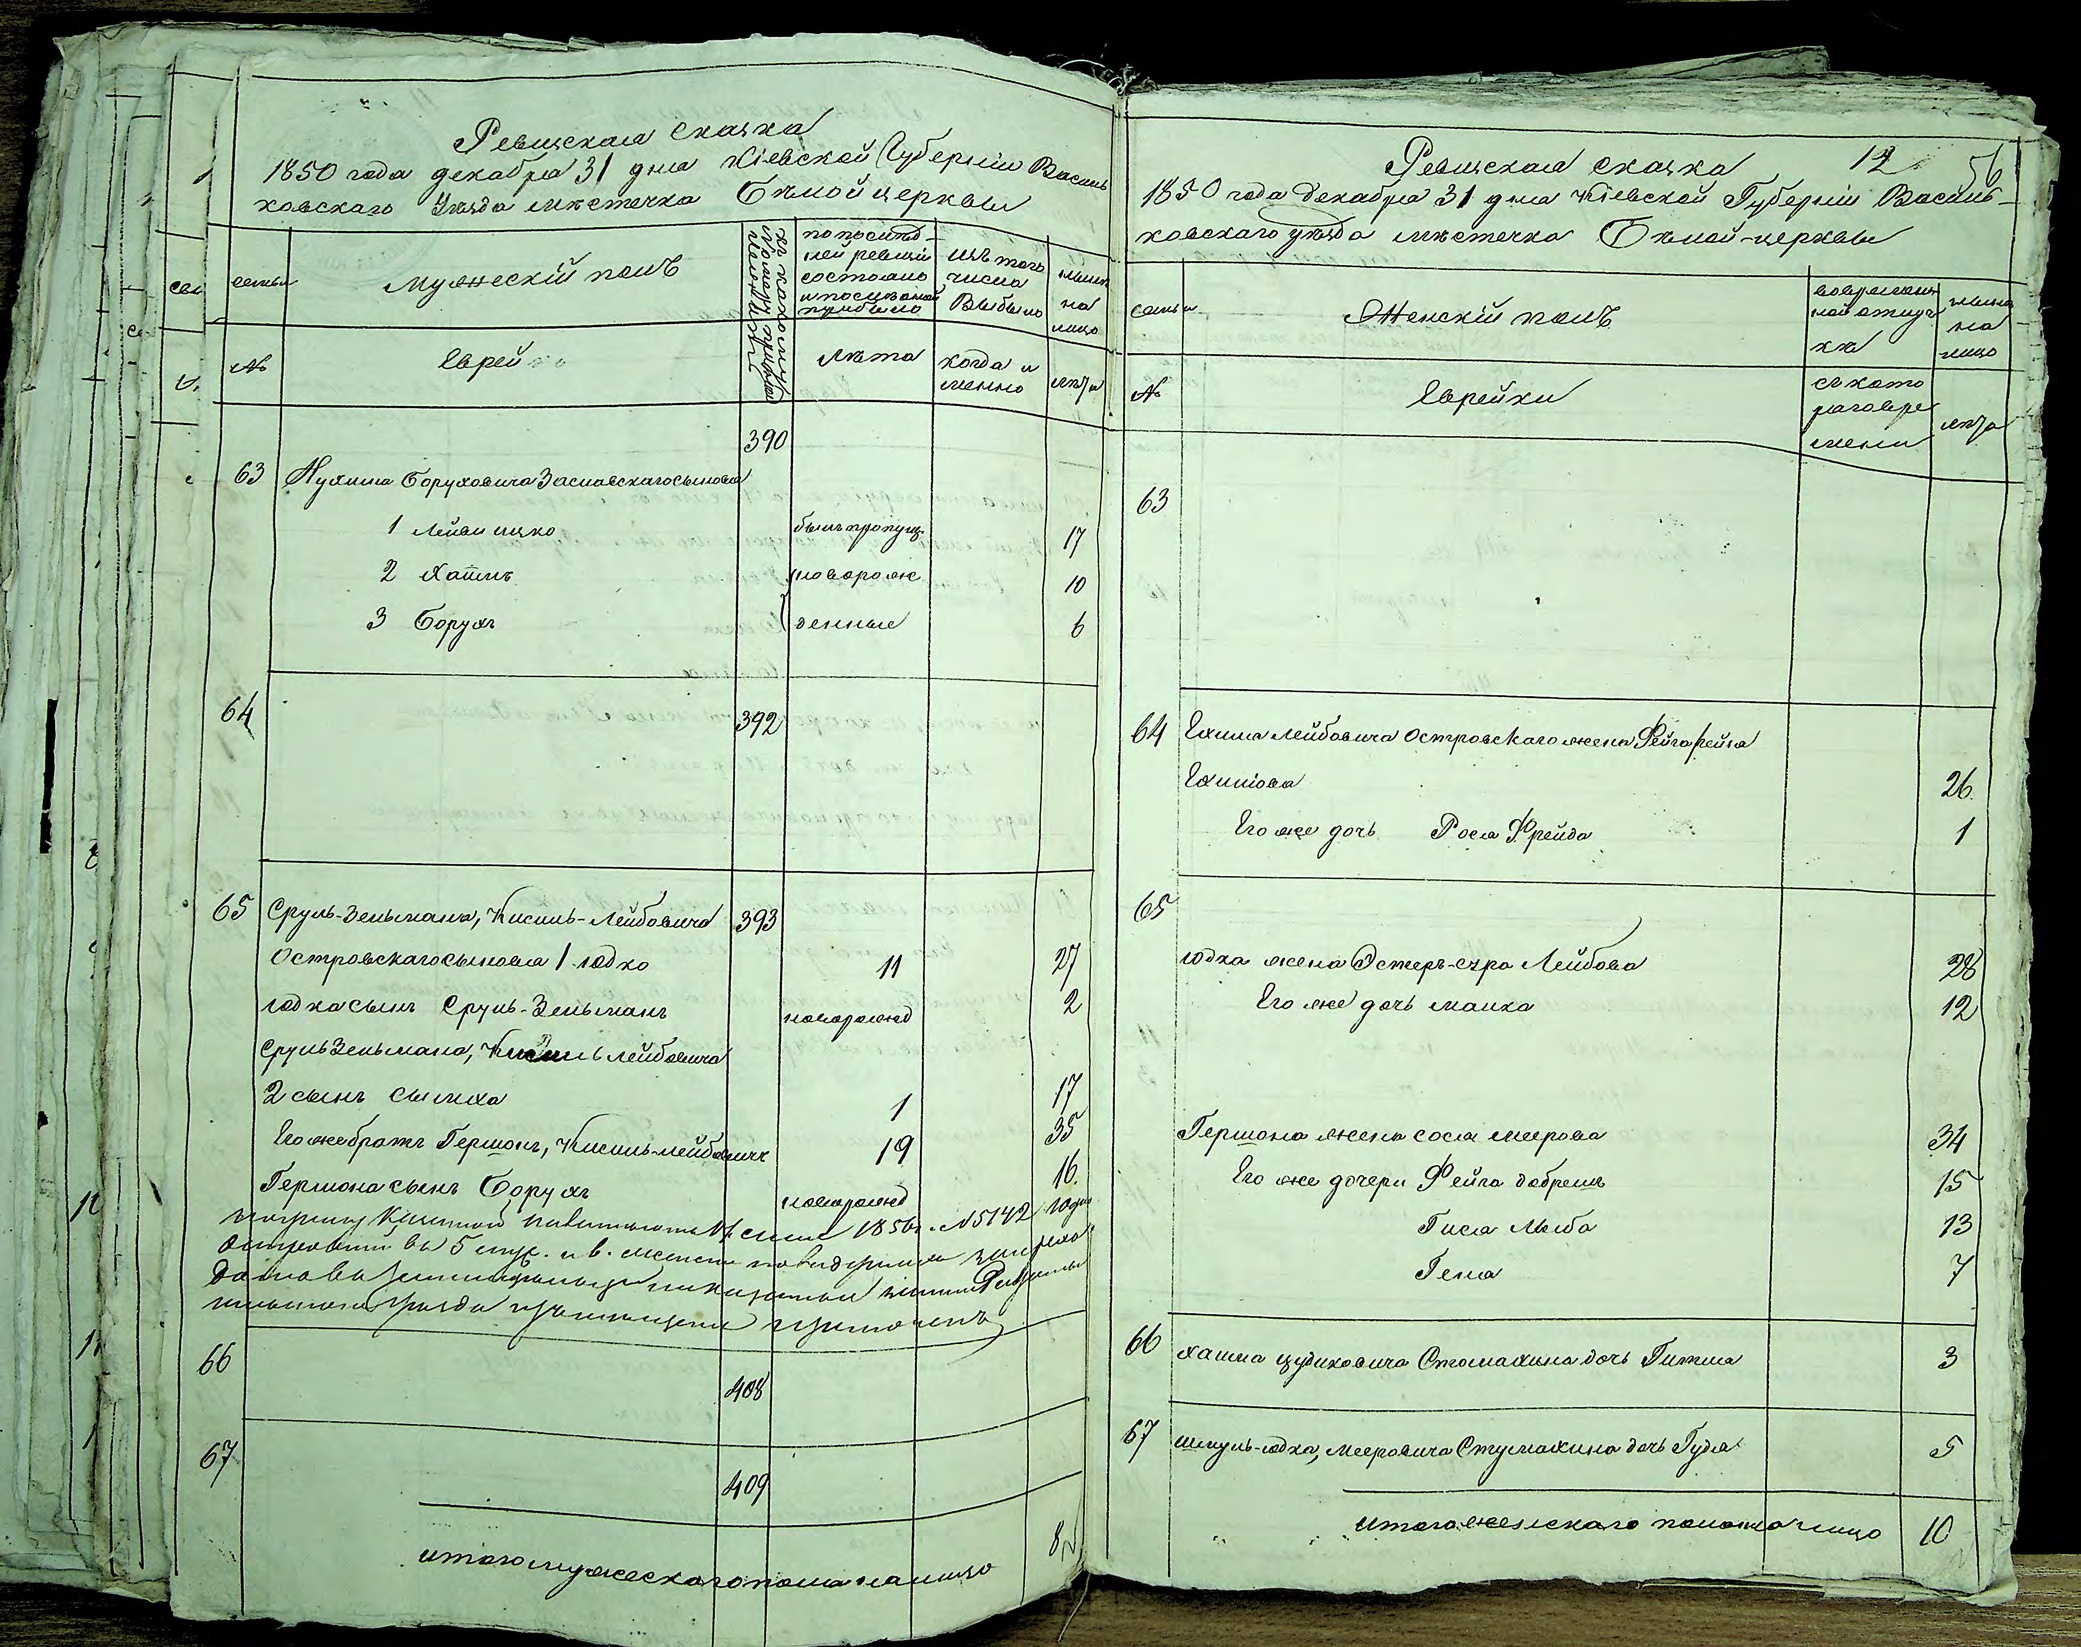 Ревизская сказка
1850 года декабря 31 дня Кіевской Губерніи Василь
ковскаго Уѣзда мѣстечка Бѣлой церквы
семьи
мужескій полъ
по послѣд-
ней ревизіи
состояло
и после оной
прибыло
изъ того
числа
Выбыло
нынѣ
на
лицо
№
Еврей
лѣта
когда и
менно
лѣта
390
63 Нухима Боруховича Заславскаго сыновья
1 Лейви ицко былъ пропущ. 17
2 Хаимъ новорож 10
3 Борухъ денные 6
64 392
65 Сруль-Зельмана, Кисиль-Лейбовича 393
Островскаго сыновья 1 юдко 11 27
юдка сынъ Сруль-Зельманъ новорожд 2
Сруль Зельмана, Кисиль Лейбовича
2 сынъ Симха 1 17
Его же братъ Гершонъ, Кисиль-лейбовичъ 19 35
Гершона сынъ Борухъ новорожд 16.
66
408
67
409
итого мужескаго пола на лицо 8
Ревизская сказка 12 56
1850 года декабря 31 дня Кіевской Губерніи Василь-
ковскаго уѣзда мѣстечка Бѣлой-церквы
семьи
Женскій полъ
во времен
ной отлуч
кѣ
нынѣ
на
лицо
№
Еврейки
съ кото
раго вре
мени
лѣта
63
64 Ехима Лейбовича Островскаго жена Фейга рейза
Ехимова 26.
Его же дочь Рося Фрейда 1
65
юдка жена Эстеръ-сура Лейбова 28
Его же дочь малка 12
Гершона жена сося меерова 34
Его же дочери Фейга добрешъ 15
Гися Лыба 13
Геня 7
66 Хаима Стомахина дочь Гитля 3
67 шмуль-юдка, мееровича Стумахина дочь Гудя 5
итого женскаго пола на лицо 10